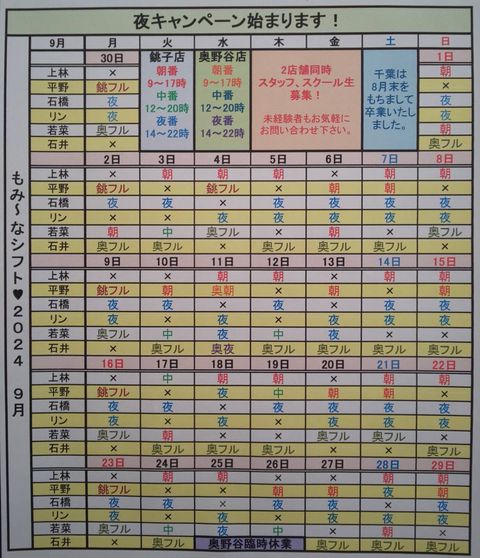 夜キャンペーン始まります！
もみ～なシフト♥2024 9月
9月 月 火 水 木 金 土 日
30日 1日
銚子店
朝番
9～17時
中番
12～20時
夜番
14～22時
奥野谷店
朝番
9～17時
中番
12～20時
夜番
14～22時
2店舗同時
スタッフ、スクール生
募集！
未経験者もお気軽に
お問い合わせ下さい。
千葉は
8月末を
もちまして
卒業いたし
ました。
上林 × 朝
平野 銚フル ×
石橋 夜 夜
リン 夜 夜
若菜 奥フル 奥フル
石井 × ×
2日 3日 4日 5日 6日 7日 8日
上林 × 朝 朝 × 朝 朝 朝
平野 銚フル × 銚フル × 朝 朝 ×
石橋 夜 夜 × 夜 夜 夜 夜
リン × × 夜 夜 夜 夜 夜
若菜 朝 中 奥フル × × × 奥フル
石井 奥フル 奥フル × 奥フル 奥フル 奥フル ×
9日 10日 11日 12日 13日 14日 15日
上林 × × 朝 朝 × 朝 朝
平野 銚フル 朝 奥朝 × 朝 朝 ×
石橋 夜 夜 × 夜 夜 夜 夜
リン 夜 × 夜 夜
若菜 奥フル 中 夜 中 ×
石井 × 奥フル 奥夜 × 奥フル 奥フル 奥フル
16日 17日 18日 19日 20日 21日 22日
上林 × 中 朝 朝 × 朝 朝
平野 銚フル × 夜 中 朝 朝 ×
石橋 夜 夜 × 夜 夜 夜 夜
リン 夜 × 夜 夜
若菜 奥フル 朝
石井
23日 24日 25日 26日 27日 28日 29日
上林 × 朝 朝
平野 銚フル × ×
石橋 夜 夜 ×
リン
若菜 奥フル 中 夜 中
石井 × 奥フル 奥野谷臨時休業 奥フル 奥フル 奥フル